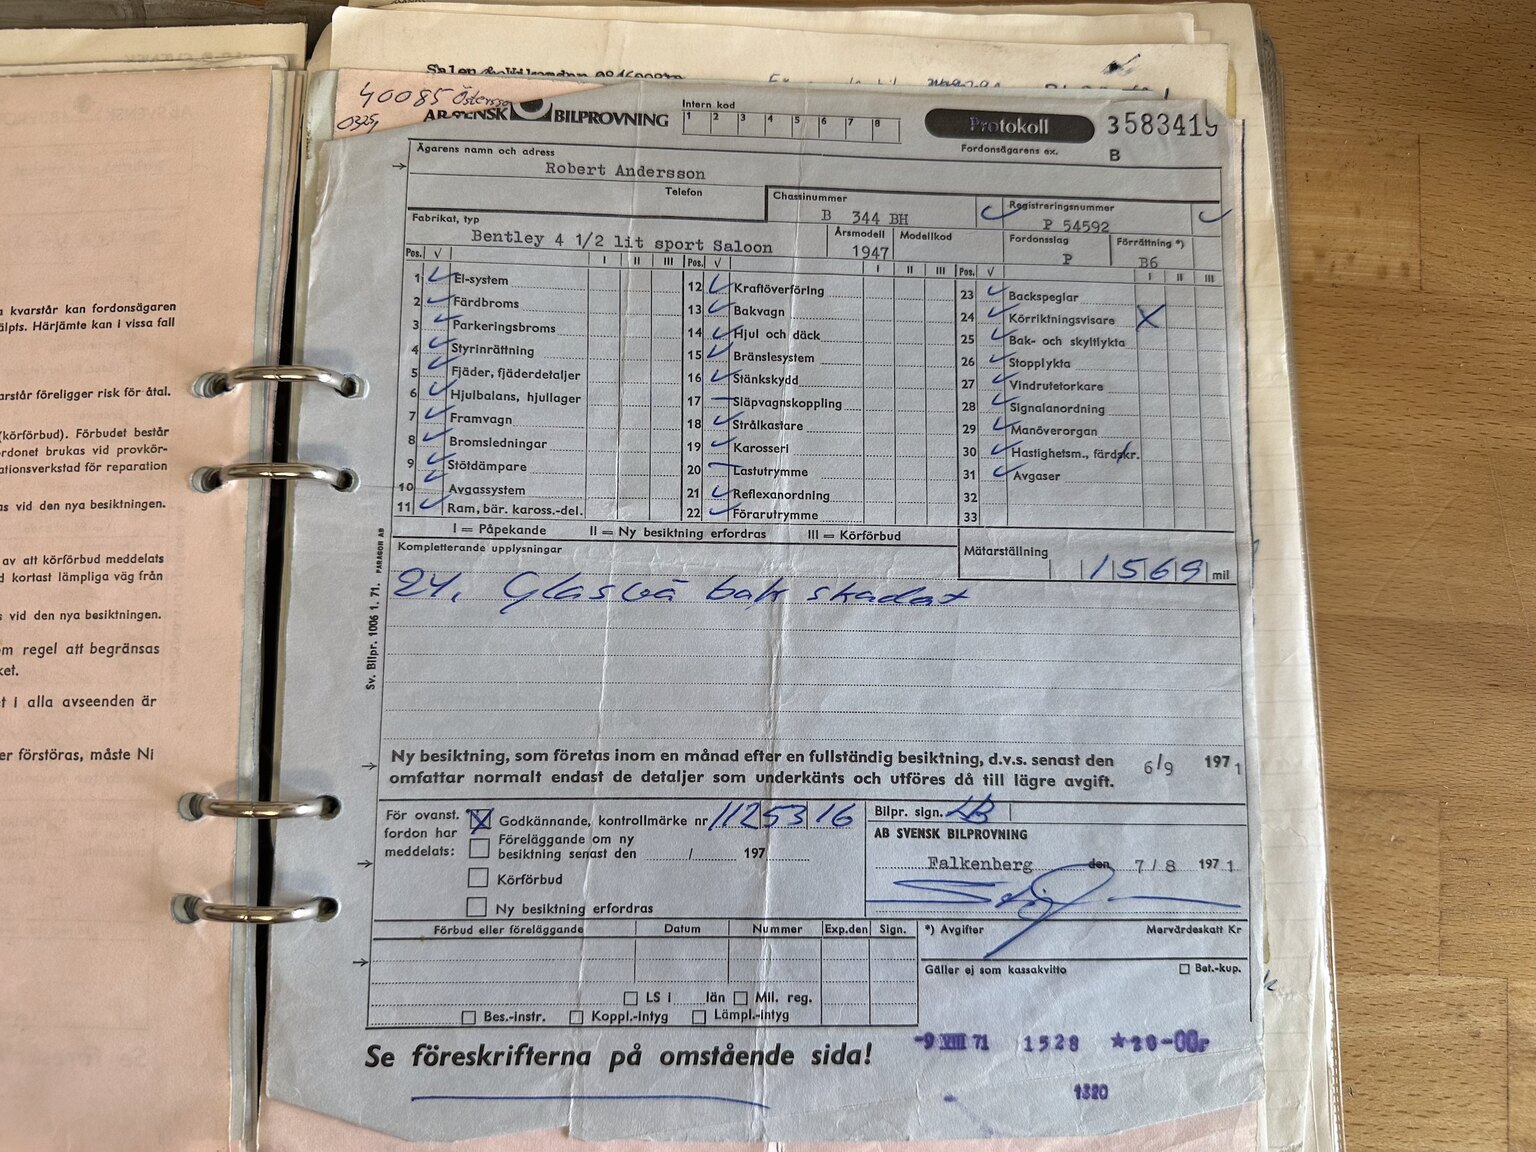 a kvarstår kan fordonsägaren
älpts. Härjämte kan i vissa fall
arstår föreligger risk för åtal.
(körförbud). Förbudet består
ordonet brukas vid provkör-
ationsverkstad för reparation
as vid den nya besiktningen.
av att körförbud meddelats
d kortast lämpliga väg från
s vid den nya besiktningen.
om regel att begränsas
ket.
t i alla avseenden är
er förstöras, måste Ni
40085
0325
AB SVENSK BILPROVNING
Intern kod
1 2 3 4 5 6 7 8
Protokoll
Fordonsägarens ex.
3583419
B
Ägarens namn och adress
Robert Andersson
Telefon
Chassinummer
B 344 BH
Registreringsnummer
P 54592
Fabrikat, typ
Bentley 4 1/2 lit sport Saloon
Årsmodell
1947
Modellkod
Fordonsslag
P
Förrättning *)
B6
Pos. √ I II III Pos. √ I II III Pos. √ I II III
1 El-system
2 Färdbroms
3 Parkeringsbroms
4 Styrinrättning
5 Fjäder, fjäderdetaljer
6 Hjulbalans, hjullager
7 Framvagn
8 Bromsledningar
9 Stötdämpare
10 Avgassystem
11 Ram, bär. kaross.-del.
12 Kraftöverföring
13 Bakvagn
14 Hjul och däck
15 Bränslesystem
16 Stänkskydd
17 Släpvagnskoppling
18 Strålkastare
19 Karosseri
20 Lastutrymme
21 Reflexanordning
22 Förarutrymme
23 Backspeglar
24 Körriktningsvisare X
25 Bak- och skyltlykta
26 Stopplykta
27 Vindrutetorkare
28 Signalanordning
29 Manöverorgan
30 Hastighetsm., färdskr.
31 Avgaser
32
33
I = Påpekande II = Ny besiktning erfordras III = Körförbud
Kompletterande upplysningar
Mätarställning
1569 mil
24. Glas vä bak skadat
Sv. Bilpr. 1006 1. 71. PARAGON AB
Ny besiktning, som företas inom en månad efter en fullständig besiktning, d.v.s. senast den 6/9 1971
omfattar normalt endast de detaljer som underkänts och utföres då till lägre avgift.
För ovanst.
fordon har
meddelats:
X Godkännande, kontrollmärke nr 1125316
Föreläggande om ny
besiktning senast den / 197
Körförbud
Ny besiktning erfordras
Bilpr. sign. LB
AB SVENSK BILPROVNING
Falkenberg den 7/8 1971
Förbud eller föreläggande Datum Nummer Exp.den Sign.
LS i län Mil. reg.
Bes.-instr. Koppl.-intyg Lämpl.-intyg
*) Avgifter Mervärdeskatt Kr
Gäller ej som kassakvitto Bet.-kup.
Se föreskrifterna på omstående sida!
-9 VIII 71 1528 *28-00r
1320